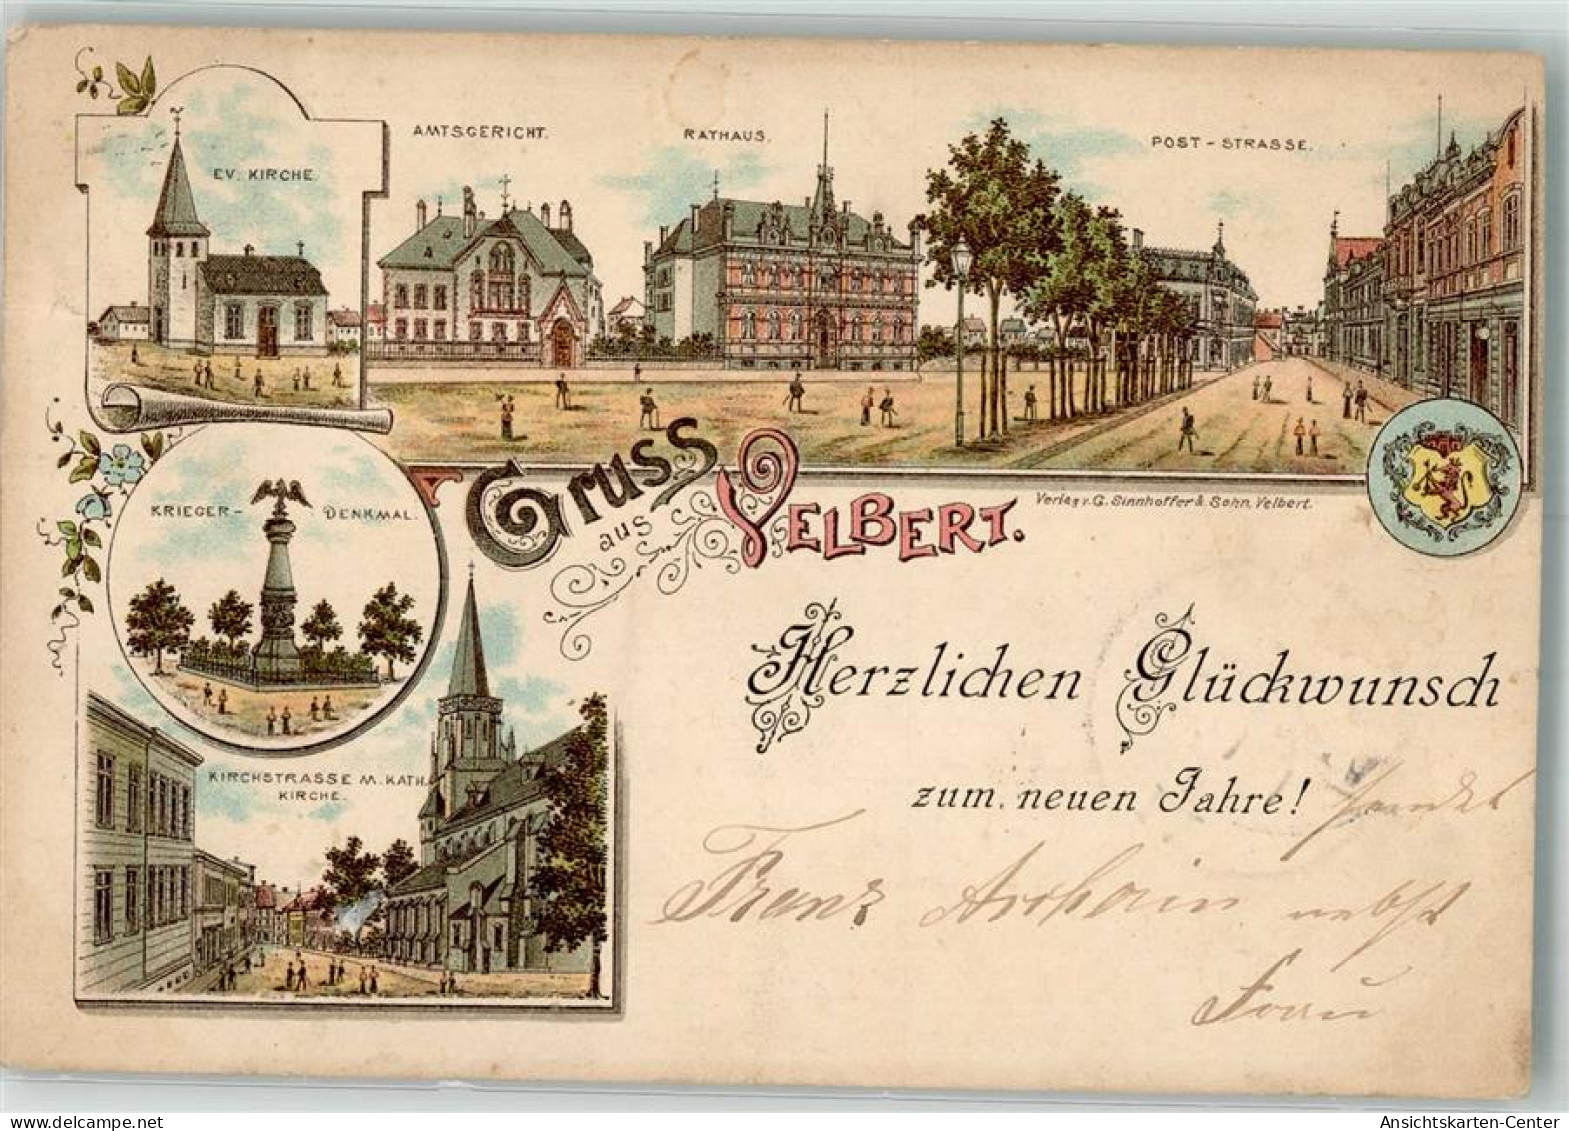 EV. KIRCHE.
AMTSGERICHT.
RATHAUS.
POST-STRASSE.
KRIEGER-DENKMAL.
Gruss
aus
VELBERT.
Verlag v. G. Sinnhoffer & Sohn, Velbert.
KIRCHSTRASSE M. KATH.
KIRCHE.
Herzlichen Glückwunsch
zum neuen Jahre! sendet
Franz nebst
Frau
www.delcampe.net
Ansichtskarten-Center